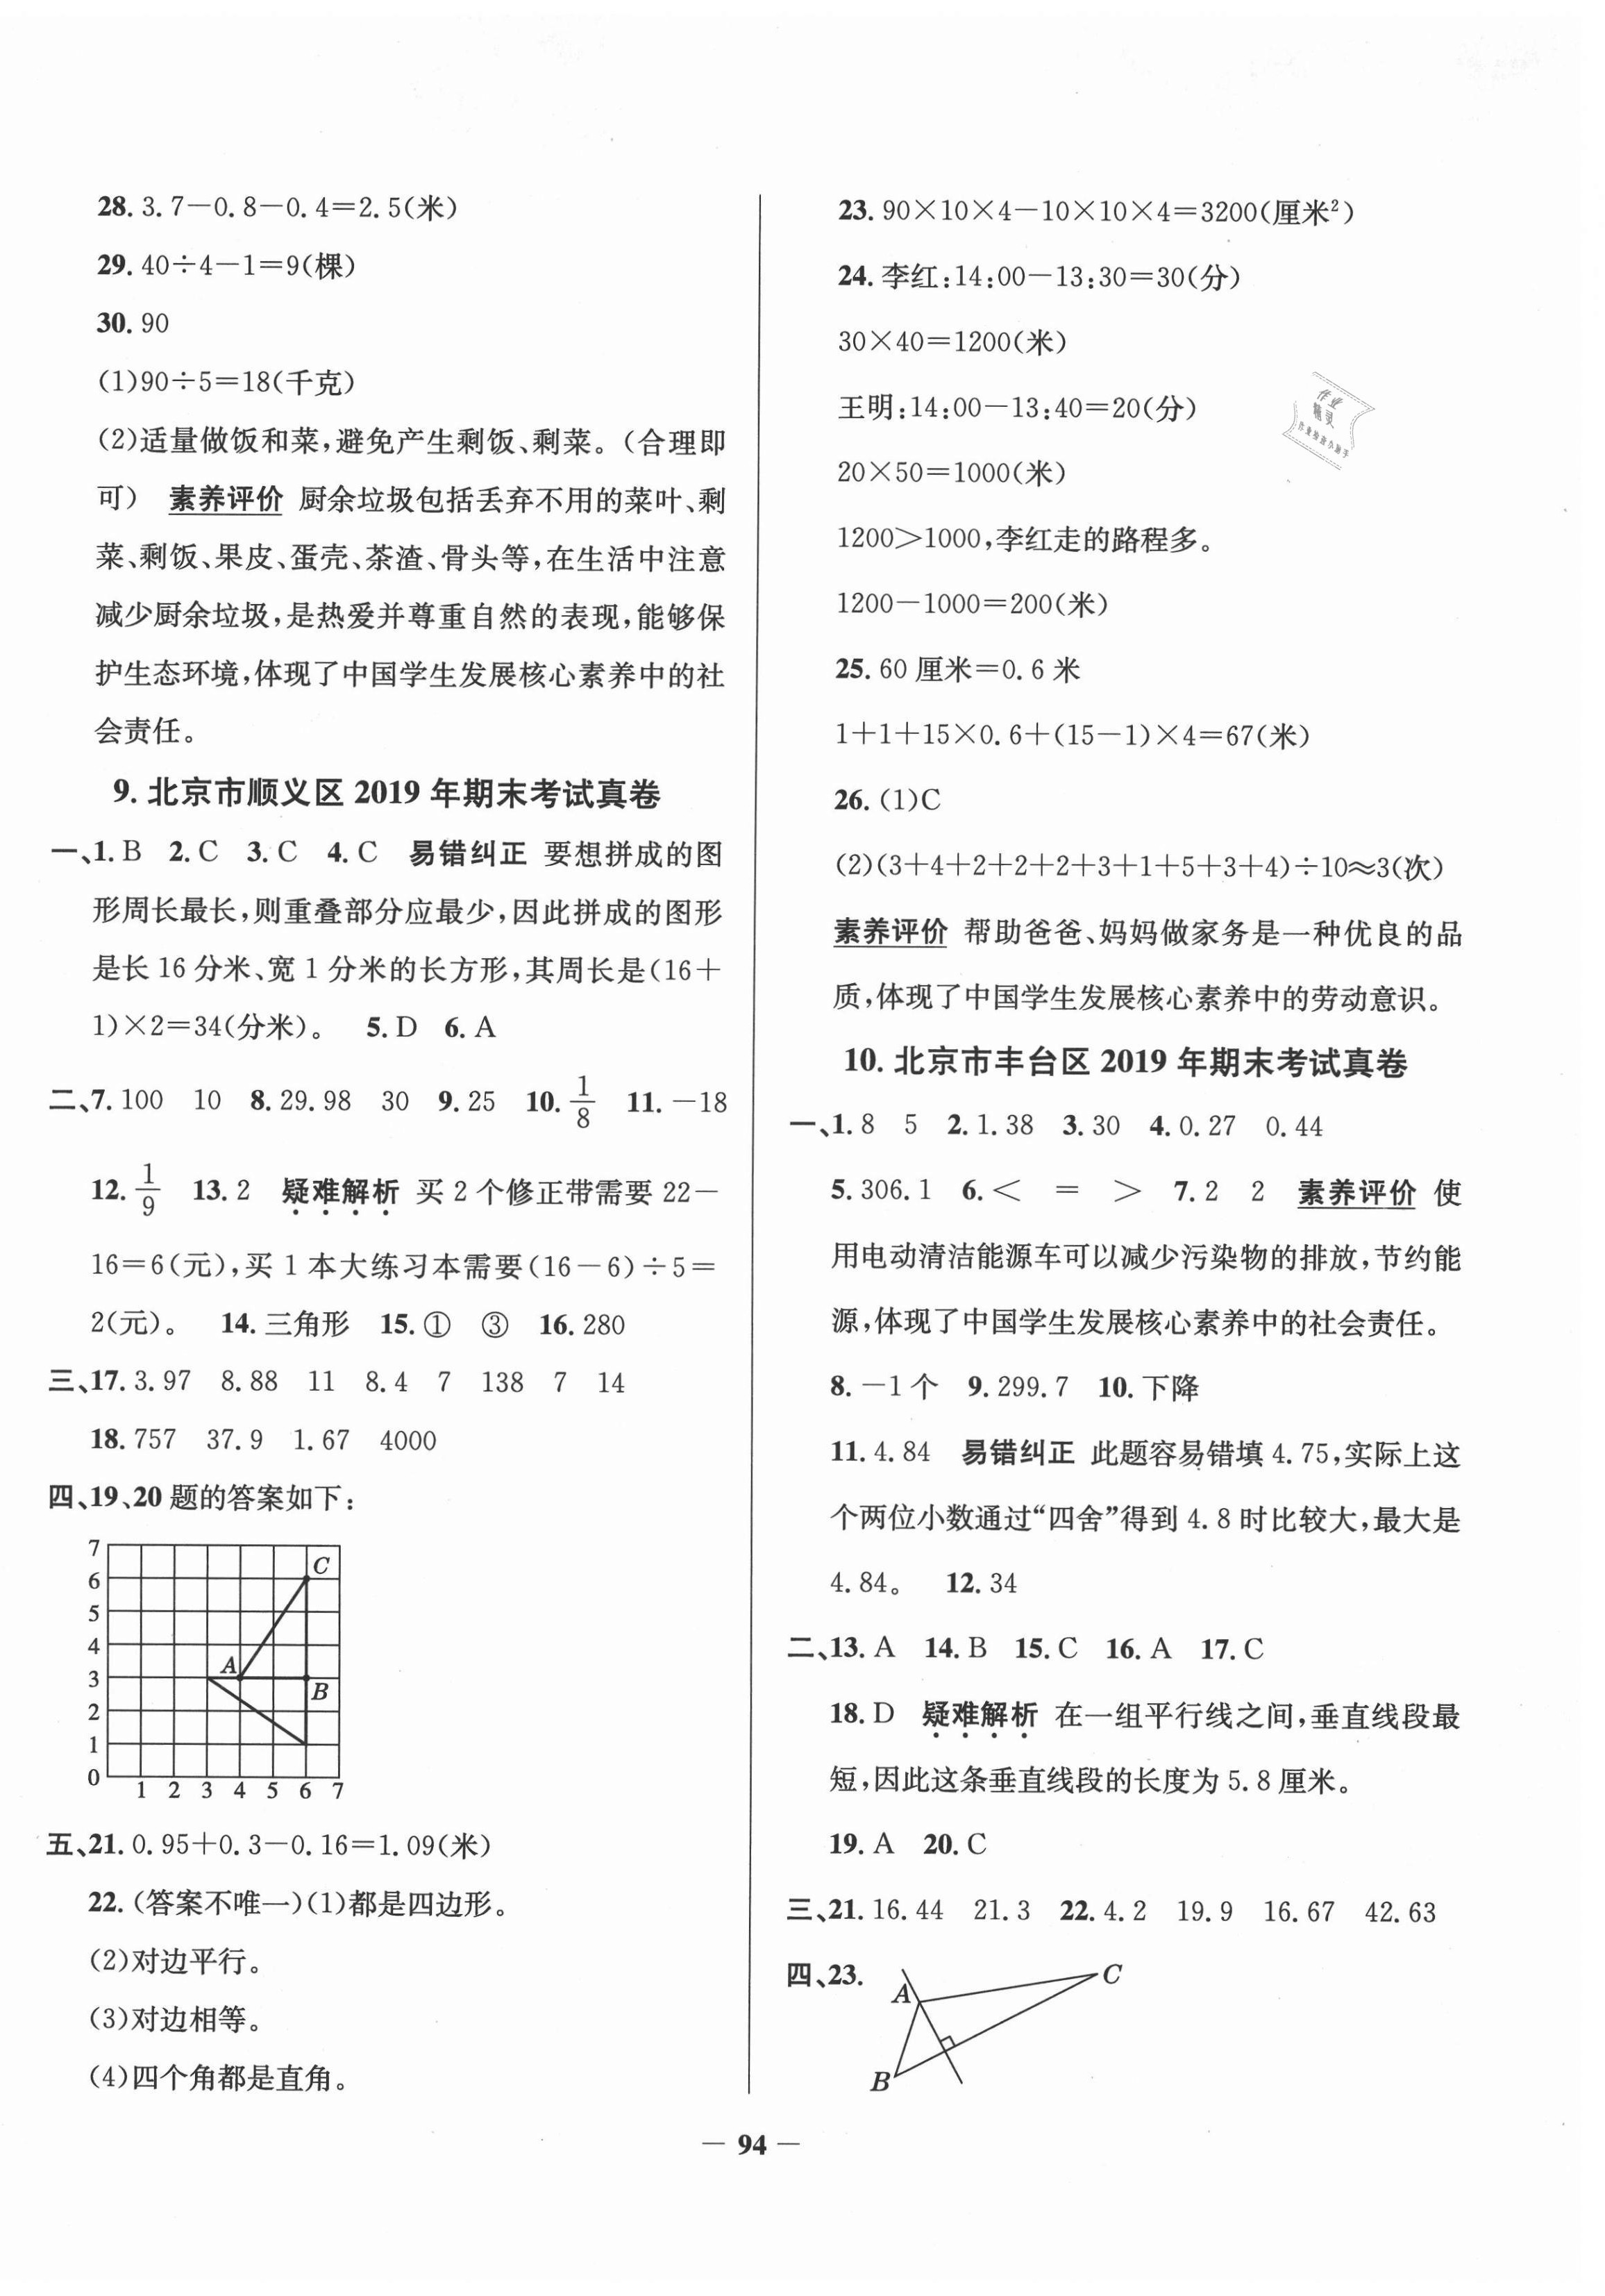 28. 3.7－0.8－0.4＝2.5(米)
29. 40÷4－1＝9(棵)
30. 90
(1)90÷5＝18(千克)
(2)适量做饭和菜,避免产生剩饭、剩菜。(合理即
可) 素养评价 厨余垃圾包括丢弃不用的菜叶、剩
菜、剩饭、果皮、蛋壳、茶渣、骨头等,在生活中注意
减少厨余垃圾,是热爱并尊重自然的表现,能够保
护生态环境,体现了中国学生发展核心素养中的社
会责任。
9. 北京市顺义区 2019 年期末考试真卷
一、1. B 2. C 3. C 4. C 易错纠正 要想拼成的图
形周长最长,则重叠部分应最少,因此拼成的图形
是长 16 分米、宽 1 分米的长方形,其周长是(16＋
1)×2＝34(分米)。 5. D 6. A
二、7. 100 10 8. 29.98 30 9. 25 10. 1/8 11. －18
12. 1/9 13. 2 疑难解析 买 2 个修正带需要 22－
16＝6(元),买 1 本大练习本需要(16－6)÷5＝
2(元)。 14. 三角形 15. ① ③ 16. 280
三、17. 3.97 8.88 11 8.4 7 138 7 14
18. 757 37.9 1.67 4000
四、19、20 题的答案如下:
7
6
5
4
3
2
1
0
C
A
B
1 2 3 4 5 6 7
五、21. 0.95＋0.3－0.16＝1.09(米)
22. (答案不唯一)(1)都是四边形。
(2)对边平行。
(3)对边相等。
(4)四个角都是直角。
23. 90×10×4－10×10×4＝3200(厘米²)
24. 李红:14:00－13:30＝30(分)
30×40＝1200(米)
王明:14:00－13:40＝20(分)
20×50＝1000(米)
1200＞1000,李红走的路程多。
1200－1000＝200(米)
25. 60 厘米＝0.6 米
1＋1＋15×0.6＋(15－1)×4＝67(米)
26. (1)C
(2)(3＋4＋2＋2＋2＋3＋1＋5＋3＋4)÷10≈3(次)
素养评价 帮助爸爸、妈妈做家务是一种优良的品
质,体现了中国学生发展核心素养中的劳动意识。
10. 北京市丰台区 2019 年期末考试真卷
一、1. 8 5 2. 1.38 3. 30 4. 0.27 0.44
5. 306.1 6. ＜ ＝ ＞ 7. 2 2 素养评价 使
用电动清洁能源车可以减少污染物的排放,节约能
源,体现了中国学生发展核心素养中的社会责任。
8. －1 个 9. 299.7 10. 下降
11. 4.84 易错纠正 此题容易错填 4.75,实际上这
个两位小数通过“四舍”得到 4.8 时比较大,最大是
4.84。 12. 34
二、13. A 14. B 15. C 16. A 17. C
18. D 疑难解析 在一组平行线之间,垂直线段最
短,因此这条垂直线段的长度为 5.8 厘米。
19. A 20. C
三、21. 16.44 21.3 22. 4.2 19.9 16.67 42.63
四、23.
A
C
B
作业
精灵
— 94 —